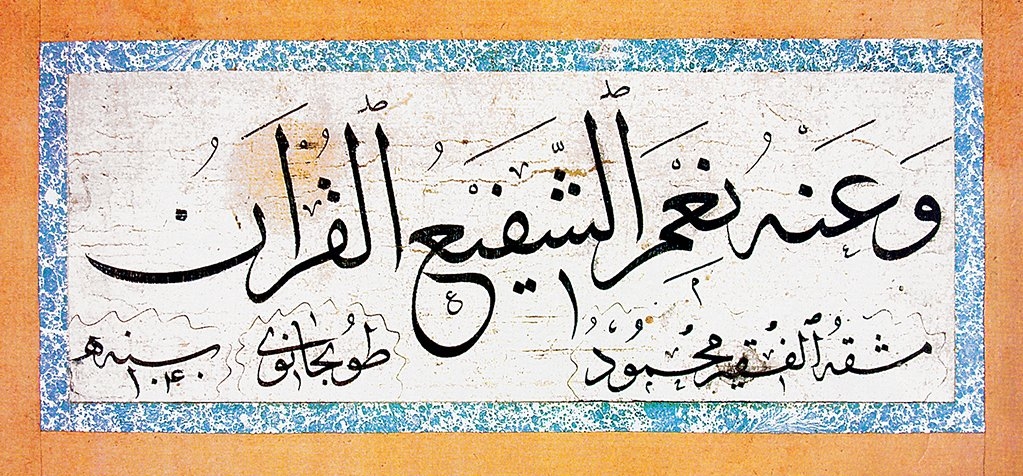 وَعَنْهُ نِعْمَ ٱلشَّفِيعُ ٱلْقُرْاٰنُ
مشقه ٱلفقير محمود طوبخانوى سنه